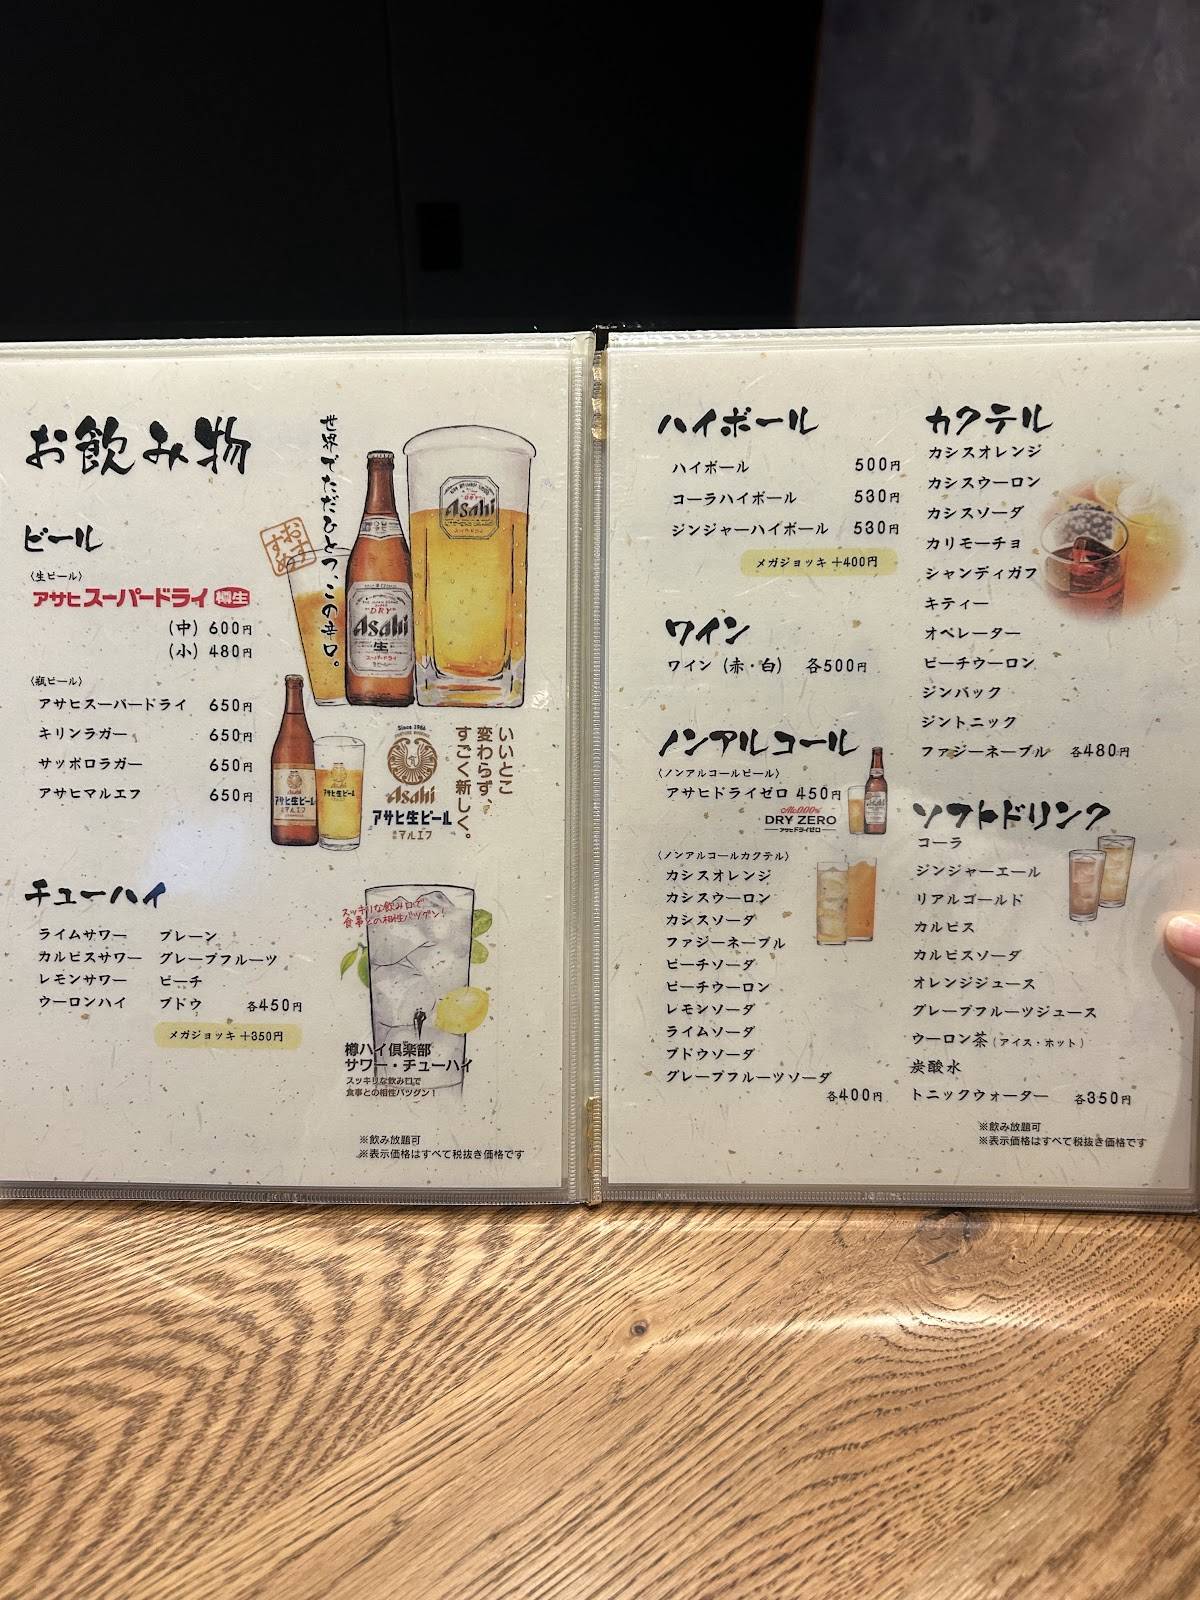 お飲み物
ビール
〈生ビール〉
アサヒスーパードライ 樽生
(中) 600円
(小) 480円
〈瓶ビール〉
アサヒスーパードライ 650円
キリンラガー 650円
サッポロラガー 650円
アサヒマルエフ 650円
おすすめ
世界でただひとつ、この辛口。
Asahi
SUPER
"DRY"
Asahi
生
スーパードライ
アサヒ生ビール
マルエフ
Since 1986
Asahi
アサヒ生ビール
通称マルエフ
いいとこ
変わらず、
すごく新しく。
チューハイ
ライムサワー プレーン
カルピスサワー グレープフルーツ
レモンサワー ピーチ
ウーロンハイ ブドウ 各450円
メガジョッキ +350円
スッキリな飲み口で
食事との相性バツグン!
樽ハイ倶楽部
サワー・チューハイ
スッキリな飲み口で
食事との相性バツグン!
※飲み放題可
※表示価格はすべて税抜き価格です
ハイボール
ハイボール 500円
コーラハイボール 530円
ジンジャーハイボール 530円
メガジョッキ +400円
ワイン
ワイン (赤・白) 各500円
ノンアルコール
〈ノンアルコールビール〉
アサヒドライゼロ 450円
Alc.0.00%
DRY ZERO
アサヒドライゼロ
〈ノンアルコールカクテル〉
カシスオレンジ
カシスウーロン
カシスソーダ
ファジーネーブル
ピーチソーダ
ピーチウーロン
レモンソーダ
ライムソーダ
ブドウソーダ
グレープフルーツソーダ
各400円
カクテル
カシスオレンジ
カシスウーロン
カシスソーダ
カリモーチョ
シャンディガフ
キティー
オペレーター
ピーチウーロン
ジンバック
ジントニック
ファジーネーブル 各480円
ソフトドリンク
コーラ
ジンジャーエール
リアルゴールド
カルピス
カルピスソーダ
オレンジジュース
グレープフルーツジュース
ウーロン茶 (アイス・ホット)
炭酸水
トニックウォーター 各350円
※飲み放題可
※表示価格はすべて税抜き価格です